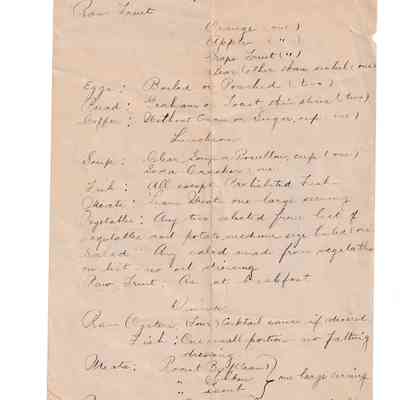 Raw Fruit
Orange (one)
Apple ( " )
Grape Fruit (")
Pear (other than sickel) (one)
Eggs: Boiled or Poached (two)
Bread: Graham or Toast thin slices (two)
Coffee: Without Cream or Sugar, cup (one)
Luncheon
Soup: Clear Soup or Bouillon, cup (one)
Soda Cracker: one
Fish: All except Prohibited Fish
Meats: Lean Meats one large serving
Vegetables: Any two selected from list of
vegetables and potato medium size boiled one
Salad: Any salad made from vegetables
on list no oil dressing
Raw Fruit: As at Breakfast
Dinner
Raw Oysters, (four) Cocktail sauce if desired
Fish: One small portion no fatting
dressing
Meats: Roast B. (lean)
" Chicken } one large serving
"